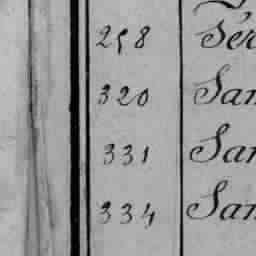 258 Ser
320 San
331 San
334 San